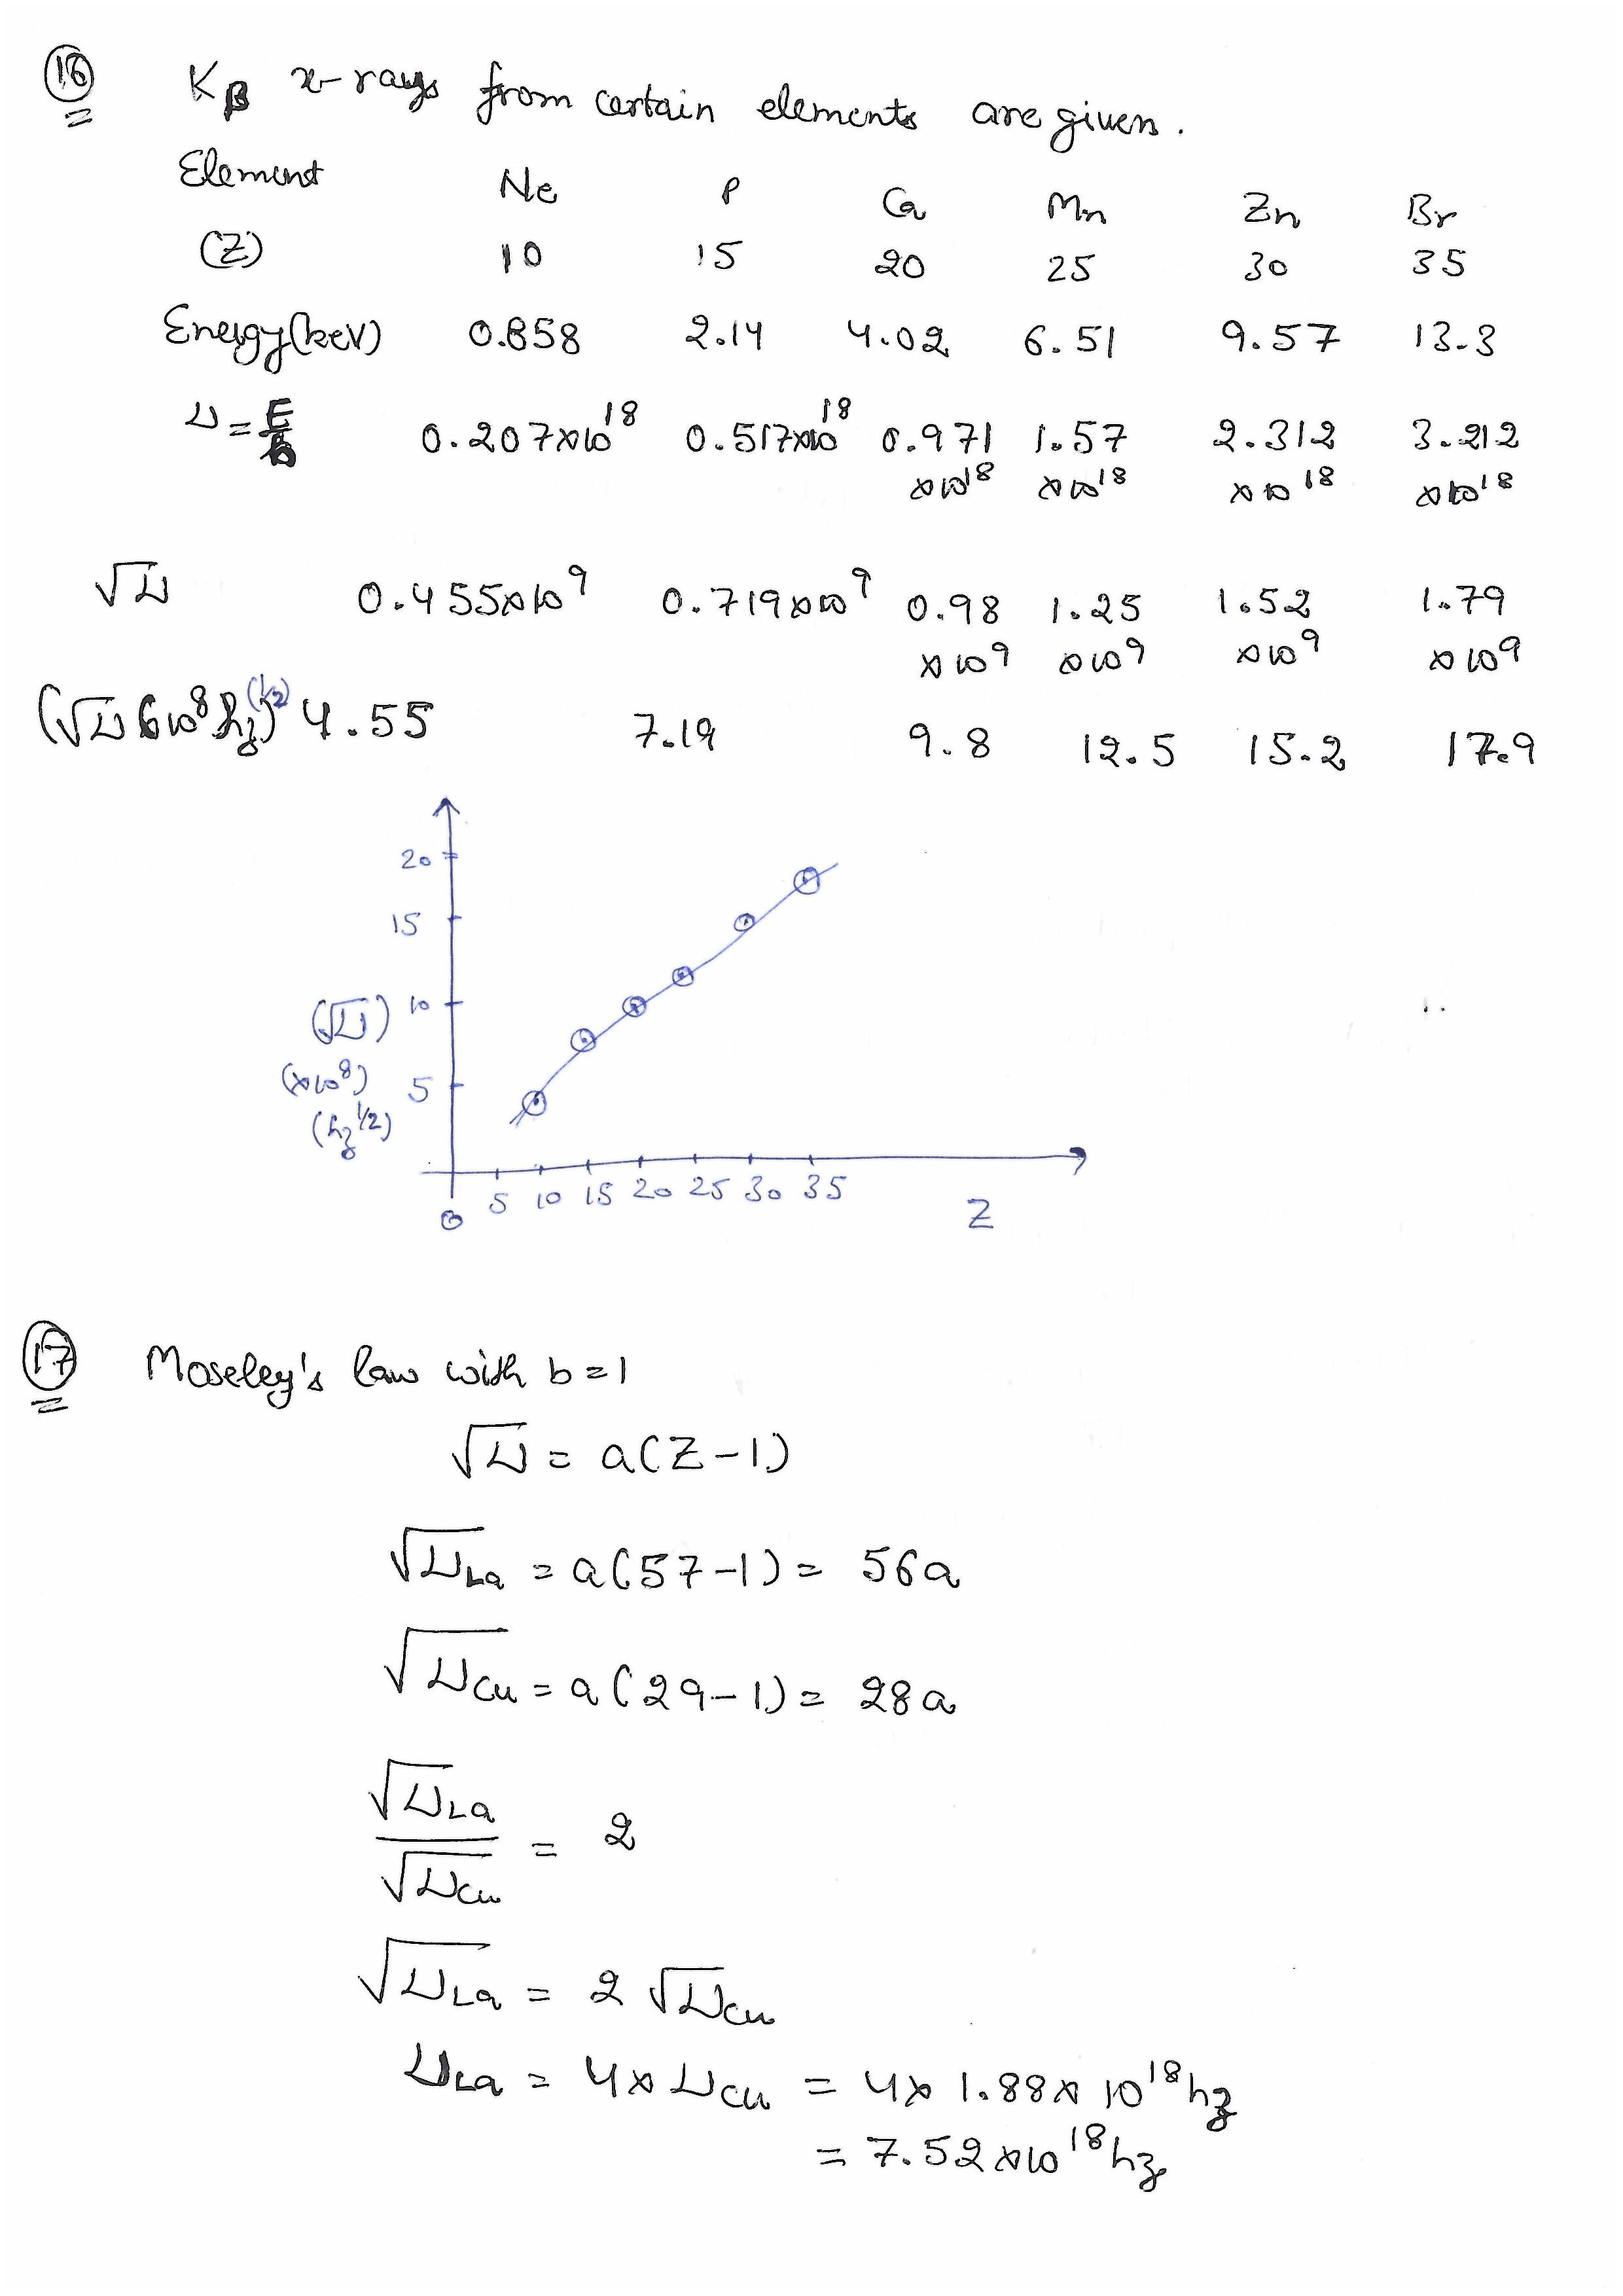 16 Kβ x-rays from certain elements are given.
Element Ne P Ca Mn Zn Br
(Z) 10 15 20 25 30 35
Energy(keV) 0.858 2.14 4.02 6.51 9.57 13.3
ν = E/h 0.207×10^18 0.517×10^18 0.971×10^18 1.57×10^18 2.312×10^18 3.212×10^18
√ν 0.455×10^9 0.719×10^9 0.98×10^9 1.25×10^9 1.52×10^9 1.79×10^9
(√ν 10^8 hz^(1/2)) 4.55 7.19 9.8 12.5 15.2 17.9
20
15
(√ν) 10
(×10^8) 5
(hz^1/2)
0 5 10 15 20 25 30 35 Z
17 Moseley's law with b=1
√ν = a(Z-1)
√ν_La = a(57-1) = 56a
√ν_Cu = a(29-1) = 28a
√ν_La / √ν_Cu = 2
√ν_La = 2 √ν_Cu
ν_La = 4× ν_Cu = 4× 1.88× 10^18 hz
= 7.52×10^18 hz